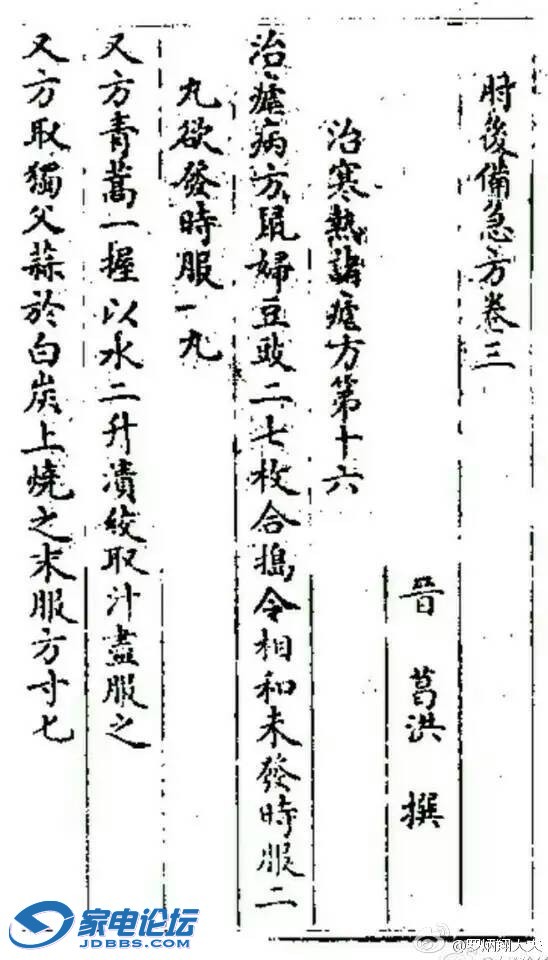 肘後備急方卷三
晉 葛洪 撰
治寒熱諸瘧方第十六
治瘧病方鼠婦豆豉二七枚合搗令相和未發時服二
丸欲發時服一丸
又方青蒿一握以水二升漬絞取汁盡服之
又方取獨父蒜於白炭上燒之末服方寸七
家电论坛
JDBBS.COM
@罗炳翔大夫